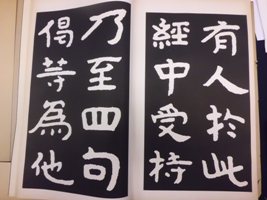 有人於此
經中受持
乃至四句
偈等為他